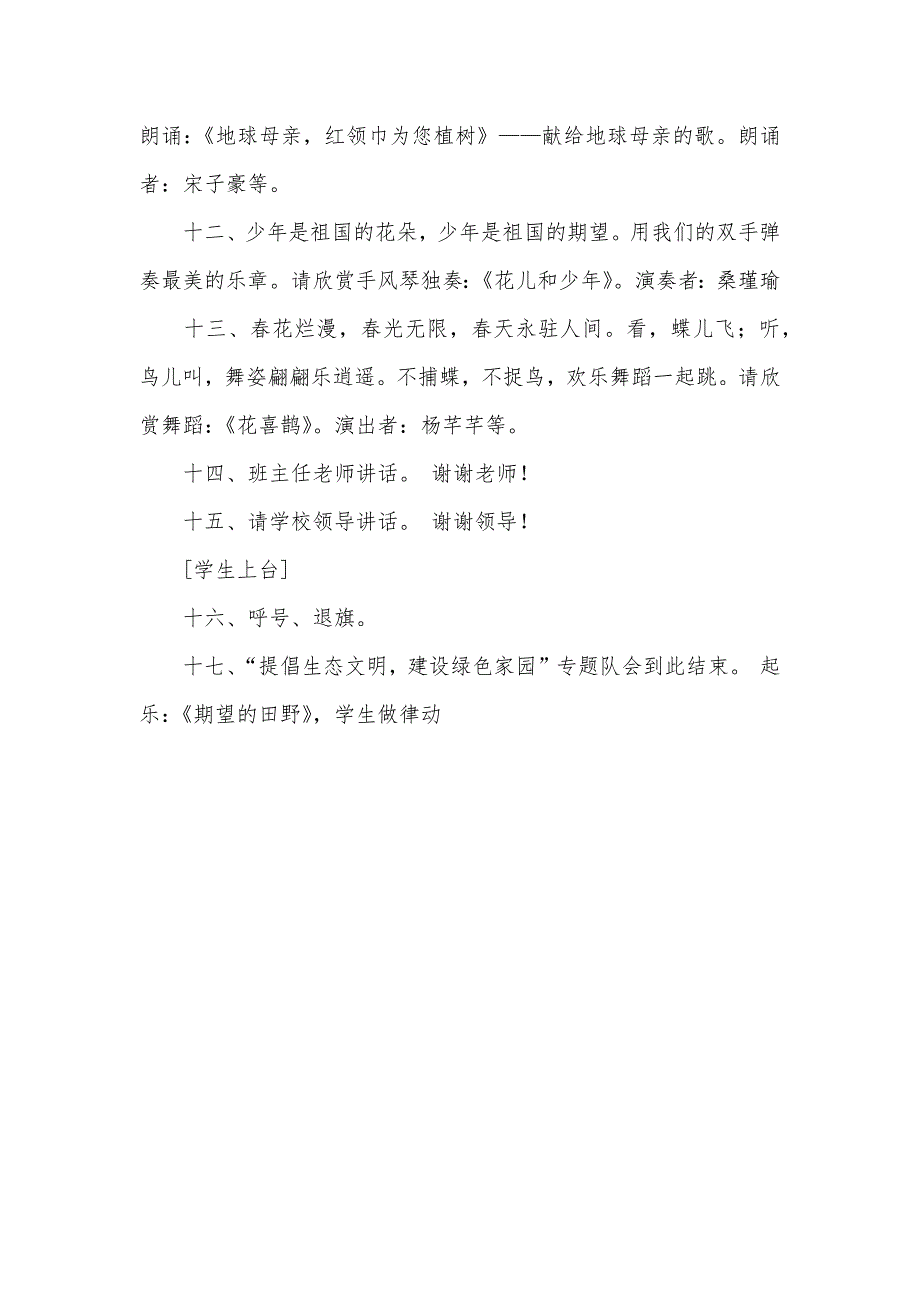 朗诵：《地球母亲，红领巾为您植树》——献给地球母亲的歌。朗诵
者：宋子豪等。
十二、少年是祖国的花朵，少年是祖国的期望。用我们的双手弹
奏最美的乐章。请欣赏手风琴独奏：《花儿和少年》。演奏者：桑瑾瑜
十三、春花烂漫，春光无限，春天永驻人间。看，蝶儿飞；听，
鸟儿叫，舞姿翩翩乐逍遥。不捕蝶，不捉鸟，欢乐舞蹈一起跳。请欣
赏舞蹈：《花喜鹊》。演出者：杨芊芊等。
十四、班主任老师讲话。 谢谢老师！
十五、请学校领导讲话。 谢谢领导！
[学生上台]
十六、呼号、退旗。
十七、“提倡生态文明，建设绿色家园”专题队会到此结束。 起
乐：《期望的田野》，学生做律动